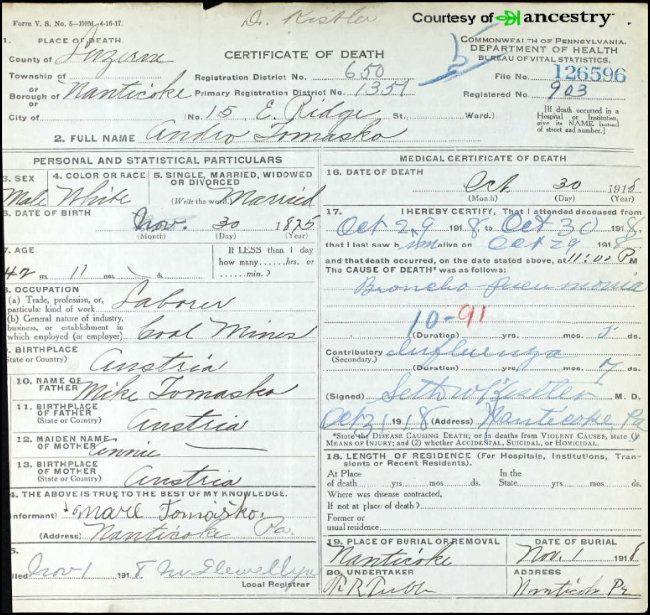 Courtesy of ancestry
Form V. S. No. 5—100M. 4-16-17.
Dr. Kistler
1. PLACE OF DEATH.
County of Luzerne
CERTIFICATE OF DEATH
COMMONWEALTH OF PENNSYLVANIA.
DEPARTMENT OF HEALTH
BUREAU OF VITAL STATISTICS.
Township of
or
Borough of Nanticoke
or
City of
Registration District No. 650
Primary Registration District No. 1357
File No. 126596
Registered No. 903
(No. 15 E. Ridge St., Ward.)
[If death occurred in a Hospital or Institution, give its NAME instead of street and number.]
2. FULL NAME Andro Tomasko
PERSONAL AND STATISTICAL PARTICULARS
3. SEX
Male
4. COLOR OR RACE
White
5. SINGLE, MARRIED, WIDOWED OR DIVORCED
(Write the word) Married
6. DATE OF BIRTH
Nov. 30 1875
(Month) (Day) (Year)
7. AGE
42 yrs. 11 mos. ds.
If LESS than 1 day
how many......hrs. or
......min.?
8. OCCUPATION
(a) Trade, profession, or, particular kind of work Laborer
(b) General nature of industry, business, or establishment in which employed (or employer) Coal Mines
9. BIRTHPLACE
(State or Country) Austria
10. NAME OF FATHER Mike Tomasko
11. BIRTHPLACE OF FATHER
(State or Country) Austria
12. MAIDEN NAME OF MOTHER Annie
13. BIRTHPLACE OF MOTHER
(State or Country) Austria
14. THE ABOVE IS TRUE TO THE BEST OF MY KNOWLEDGE.
(Informant) Tomasko
(Address) Nanticoke Pa.
15.
Filed Nov 1 1918
Local Registrar
MEDICAL CERTIFICATE OF DEATH
16. DATE OF DEATH
Oct. 30 1918
(Month) (Day) (Year)
17. I HEREBY CERTIFY, That I attended deceased from
Oct 29 1918, to Oct 30 1918
that I last saw him alive on Oct 29 1918
and that death occurred, on the date stated above, at 11:00 P M
The CAUSE OF DEATH* was as follows:
Broncho pneumonia
10-91
(Duration) yrs. mos. 5 ds.
Contributory
(Secondary.) Influenza
(Duration) yrs. mos. 7 ds.
(Signed) Seth W Kistler M. D.
Oct 31 1918 (Address) Nanticoke Pa
*State the DISEASE CAUSING DEATH; or in deaths from VIOLENT CAUSES, state (1) MEANS OF INJURY; and (2) whether ACCIDENTAL, SUICIDAL, or HOMICIDAL.
18. LENGTH OF RESIDENCE (For Hospitals, Institutions, Transients or Recent Residents).
At Place of death......yrs......mos......ds.
In the State......yrs......mos......ds.
Where was disease contracted,
If not at place of death?
Former or usual residence
19. PLACE OF BURIAL OR REMOVAL
Nanticoke
DATE OF BURIAL
Nov. 1 1918
20. UNDERTAKER
ADDRESS
Nanticoke Pa